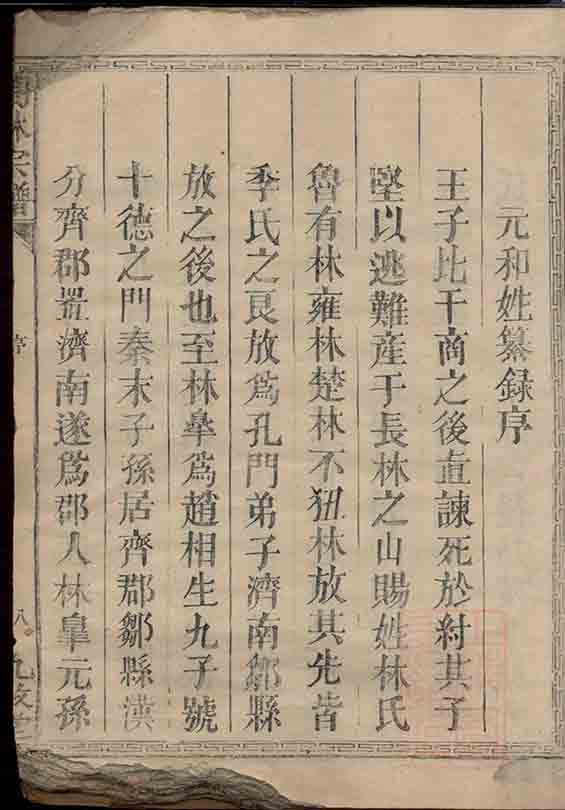 元和姓纂錄序
王子比干商之後直諫死於紂其子
堅以逃難產于長林之山賜姓林氏
魯有林雍林楚林不狃林放其先皆
季氏之良放為孔門弟子濟南鄒縣
放之後也至林皐為趙相生九子號
十德之門秦末子孫居齊郡鄒縣漢
分齊郡置濟南遂為郡人林皐元孫
林宗譜
序
八
九牧